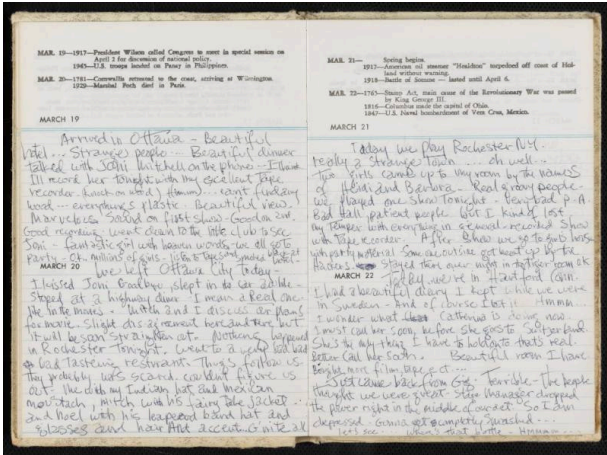 MAR. 19—1917—President Wilson called Congress to meet in special session on
April 2 for discussion of national policy.
1945—U.S. troops landed on Panay in Philippines.
MAR. 20—1781—Cornwallis retreated to the coast, arriving at Wilmington.
1929—Marshal Foch died in Paris.
MARCH 19
Arrived in Ottawa - Beautiful
hotel... Strange people - Beautiful dinner
talked with Joni Mitchell on the phone - I think
Ill record her tonight with my excellent tape
recorder (knock on wood) (hmmm)... cant find any
wood --- everythings plastic. Beautiful view.
Marvelous sound on first show - Good on 2nd.
Good recording - went down to the little club to see
Joni - fantastic girl with heaven words - we all go to
party - OK. millions of girls - listen to tapes and smoked
MARCH 20
We left Ottawa City Today -
I kissed Joni Goodbye, slept in do car
Stoped at a highway diner - I mean a Real one
like in the movies - Mitch and I discuss our plans
for movie. Slight disagreement here and there but
it will be soon straighten out. Nothing happened
in Rochester Tonight. Went to a very bad bad
bad tasting restrant. Thugs follow us.
They probibly was scard couldnt figure us
out. Me with my Indian hat and mexican
moustach, Mitch with his fairy tale Jacket
and Noel with his leapord band hat and
glasses and hair And accent. G'nite all
MAR. 21—Spring begins.
1917—American oil steamer "Healdton" torpedoed off coast of Hol-
land without warning.
1918—Battle of Somme — lasted until April 6.
MAR. 22—1765—Stamp Act, main cause of the Revolutionary War was passed
by King George III.
1816—Columbus made the capital of Ohio.
1847—U.S. Naval bombardment of Vera Cruz, Mexico.
MARCH 21
Today we play Rochester N.Y.
really a Strange Town ... oh well...
Two girls came up to my room by the names
of Heidi and Barbora. Real groovy people.
we played one show Tonight. Very bad P.A.
Bad hall, patient people but I kind of lost
my Temper with everything in general - recorded Show
with Tape recorder. After show we go to girls house
with party material. Some one outside got beat up by the
Haters. Stayed there over night in attique room OK
MARCH 22
Today we're in Hartford Conn.
I had a beautiful diary I kept while we were
in Sweden - And of course I lost it. Hmmm...
I wonder what Catherina is doing now.
I must call her soon, before she goes to Switzerland
She's the only thing I have to hold onto that's real.
Better Call her soon. Beautiful room I have
Bought more film, tape e.c.t.---
Just came back from Gig Terrible - The people
thought we were great - Stage Manager dropped
the power right in the middle of our set. So I am
depressed. Gonna get completly smashed---
let's see - where's that bottle - Hmmm...